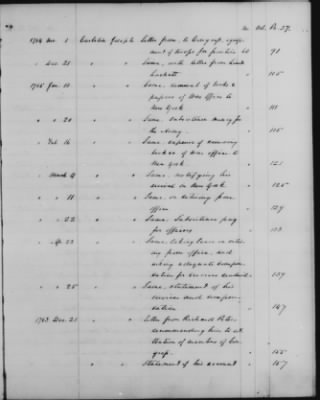 Vol. P. 37.
1784 Nov. 1 Carleton Joseph Letter from, to Congress, equip-
ment of troops for frontier &c 90
" Dec 28 " " Same, with letter from
Lockett " 105
1785 Jan 10 " " Same, removal of books &
papers of War Office to
New York " 111
" " 20 " " Same. Subsistence money for
the Army. " 115
" Feb 16 " " Same, expenses of removing
of War Office to
New York " 121
" March 9 " " Same, notifying his
arrival in New York " 125
" " 18 " " Same, on
office " 129
" " 22 " " Same. Subsistence pay
for officers " 133
" Ap. 23 " " Same, taking leave on retir-
ing from office, and
asking adequate compen-
sation for services rendered " 139
" " 25 " " Same, statement of his
services and compen-
sation " 147
1783 Dec. 21 " " Letter from Richard Peters
recommending him to at-
tention of members of Con-
gress. " 155
" " " Statement of his account " 157